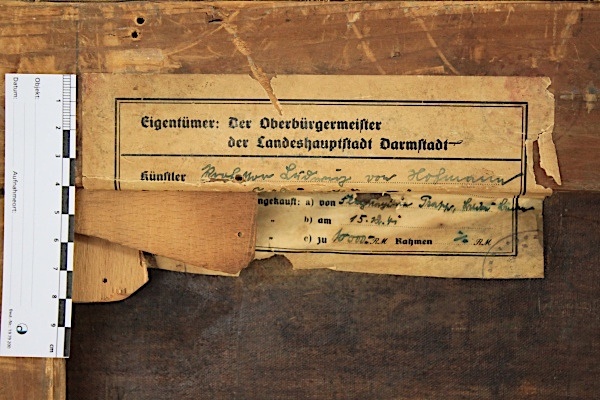 Eigentümer: Der Oberbürgermeister
der Landeshauptstadt Darmstadt
Künstler Professor Ludwig von Hofmann
ngekauft: a) von
" b) am 15.12.41
" c) zu RM Rahmen RM
Objekt:
Datum: Aufnahmeort:
1
2
3
4
5
6
7
8
9
cm